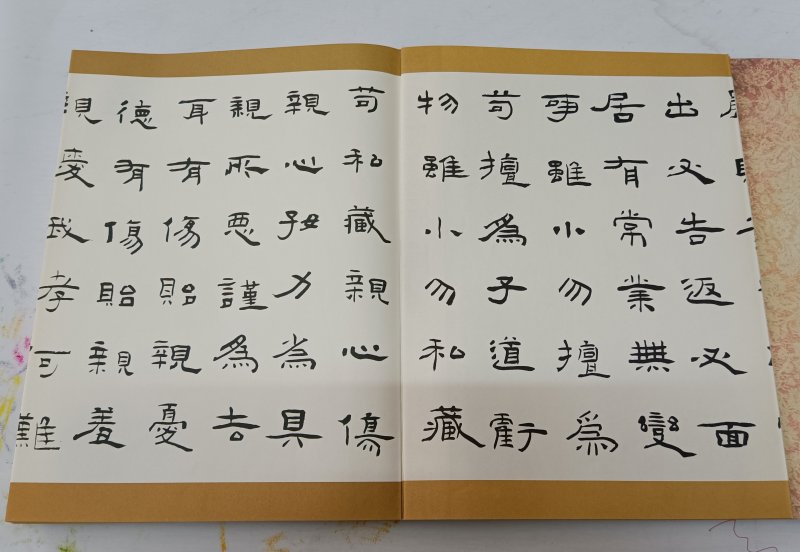 出必告返必面
居有常業無變
事雖小勿擅為
苟擅為子道虧
物雖小勿私藏
苟私藏親心傷
親心好力為具
親所悪謹為去
耳有傷貽親憂
德有傷貽親羞
親愛我孝何難